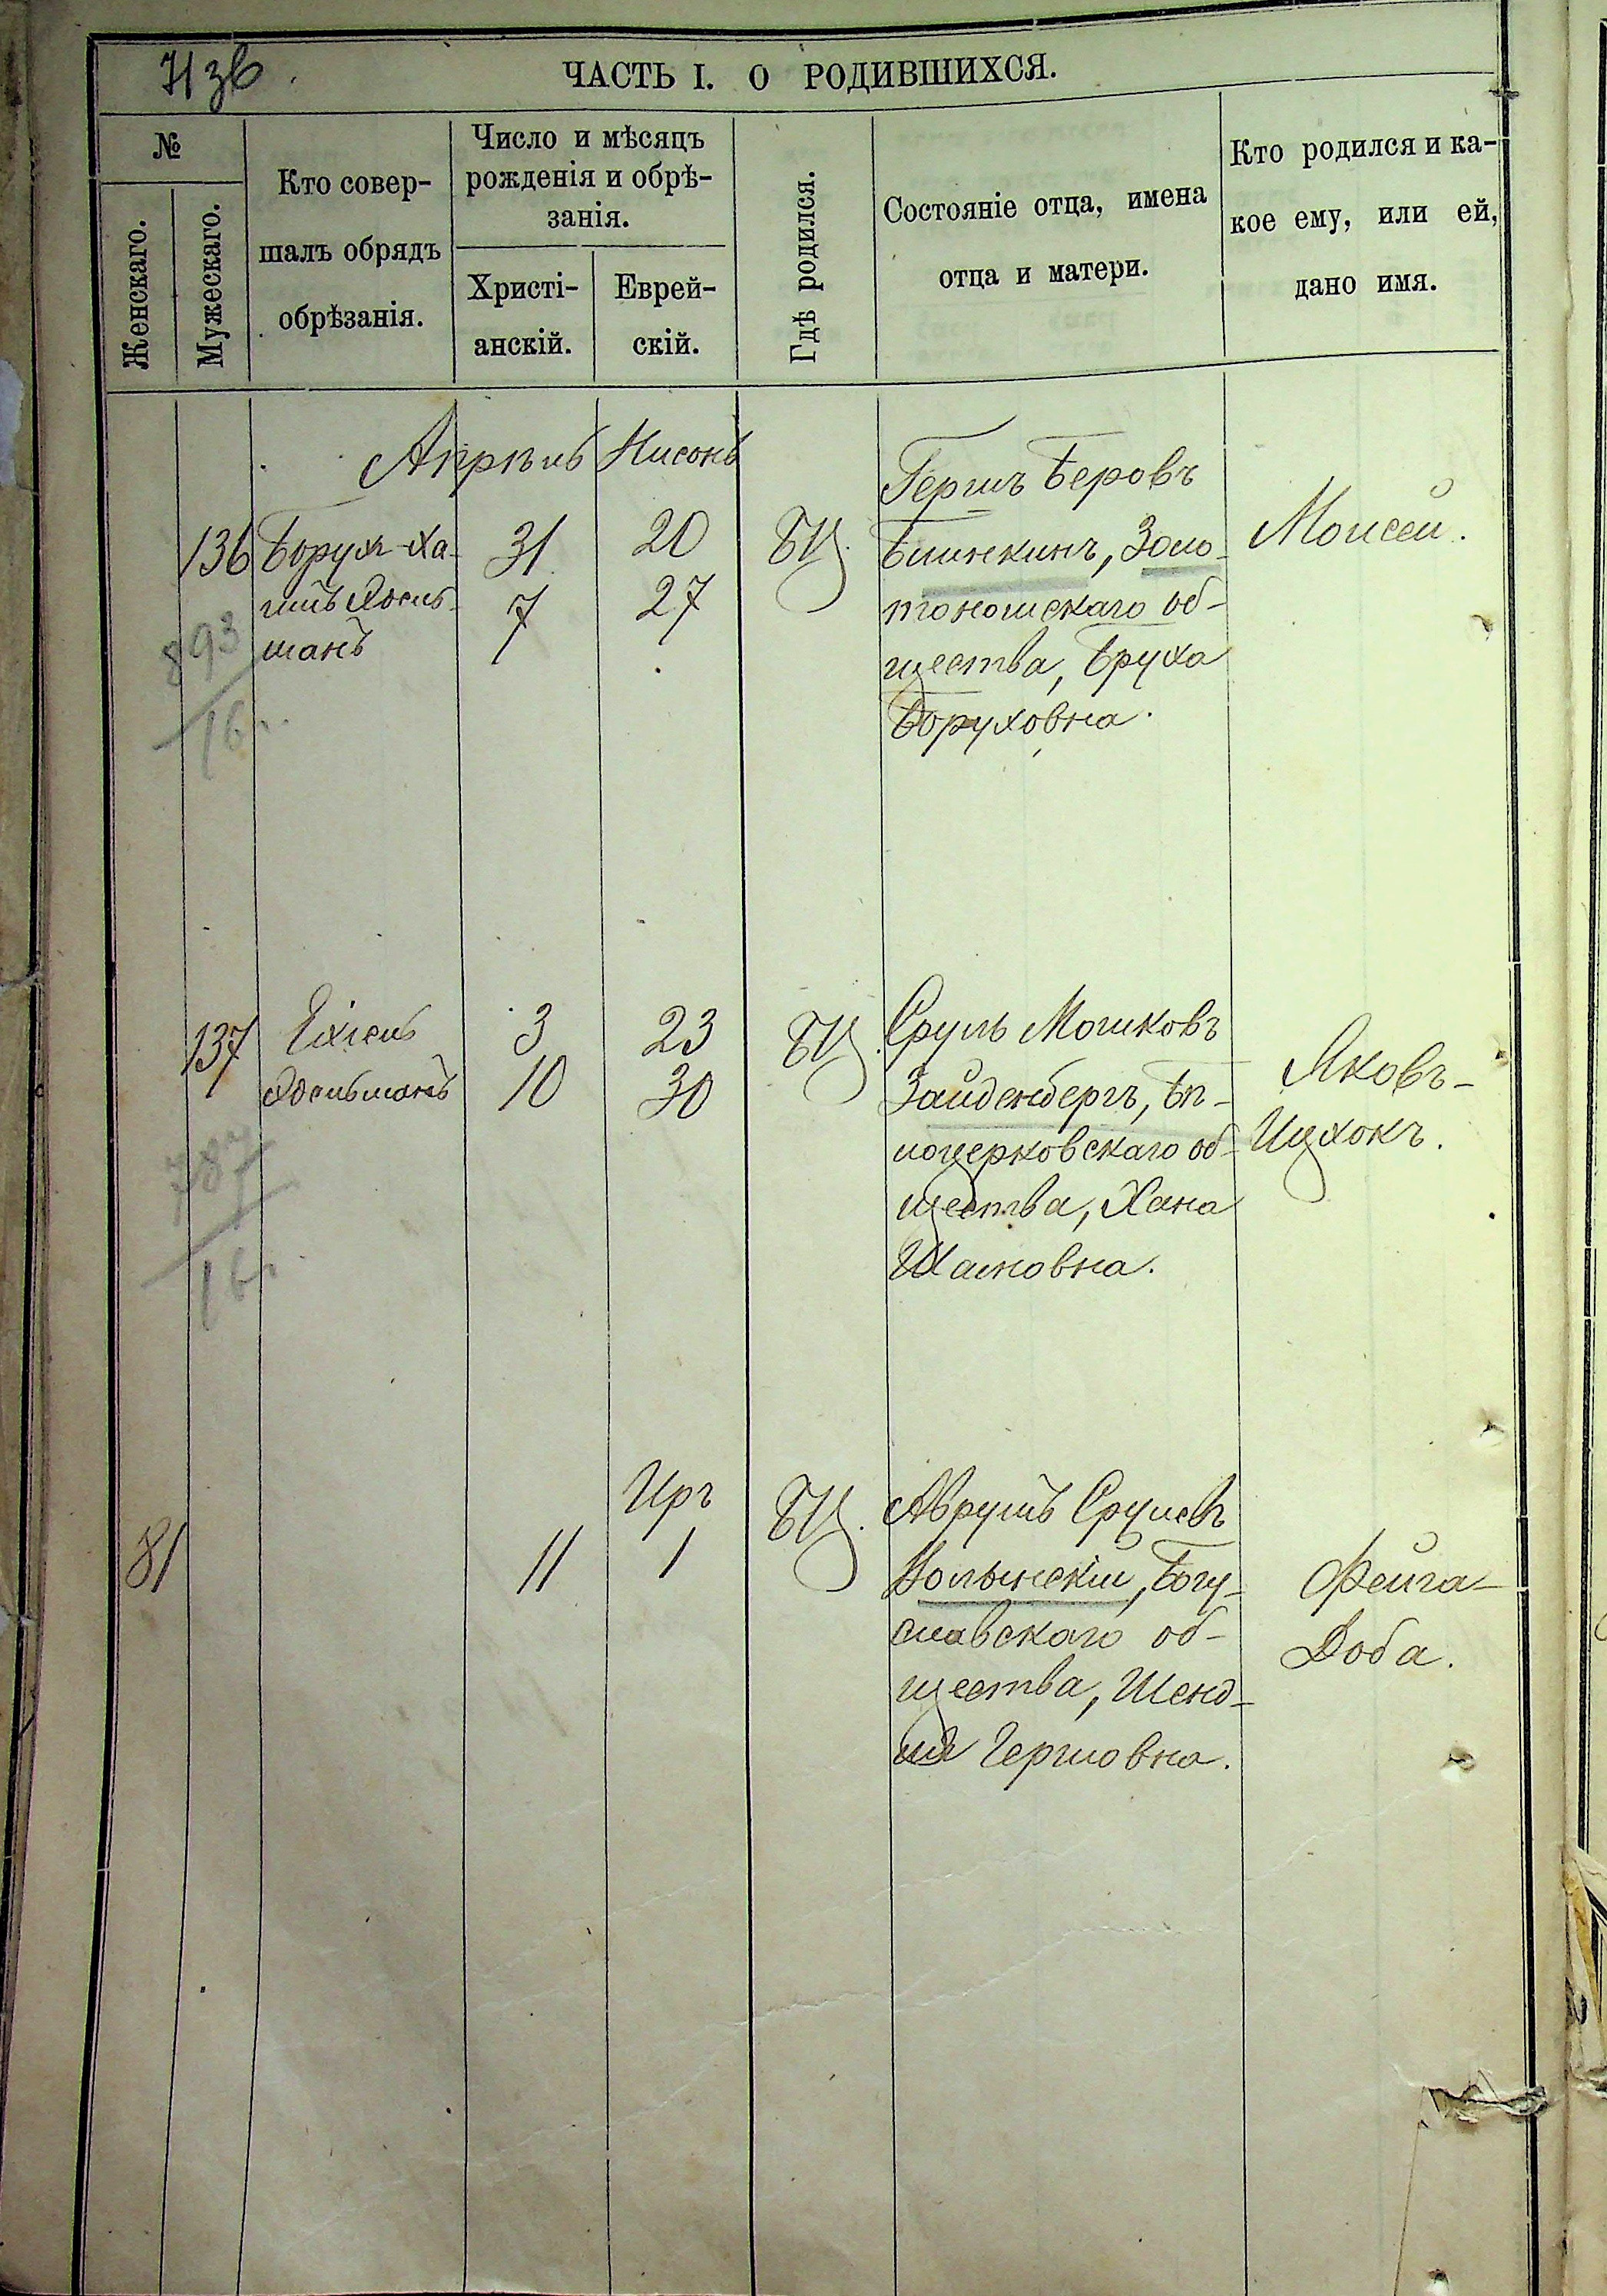 71 зв.
ЧАСТЬ I. О РОДИВШИХСЯ.
№
Женскаго.
Мужескаго.
Кто совер-
шалъ обрядъ
обрѣзанія.
Число и мѣсяцъ
рожденія и обрѣ-
занія.
Христі-
анскій.
Еврей-
скій.
Гдѣ родился.
Состояніе отца, имена
отца и матери.
Кто родился и ка-
кое ему, или ей,
дано имя.
Апрѣль Нисонъ
136
Борухъ-Ха-
имъ Адесь-
манъ
31
7
20
27
БЦ.
Гершъ Беровъ
Блинкинъ, Золо-
тоношскаго об-
щества, Бруха
Боруховна.
Моисей.
893
16 г.
137
Ехіель
Адесьманъ
3
10
23
30
БЦ.
Сруль Мошковъ
Зайденбергъ, Бѣ-
лоцерковскаго об-
щества, Хана
Шаиновна.
Яковъ-
Ицхокъ.
787
16 г.
81
11
Иръ
1
БЦ.
Аврумъ Срулевъ
Волынскій, Богу-
славскаго об-
щества, Шенд-
ля Гершовна.
Фейга-
Доба.